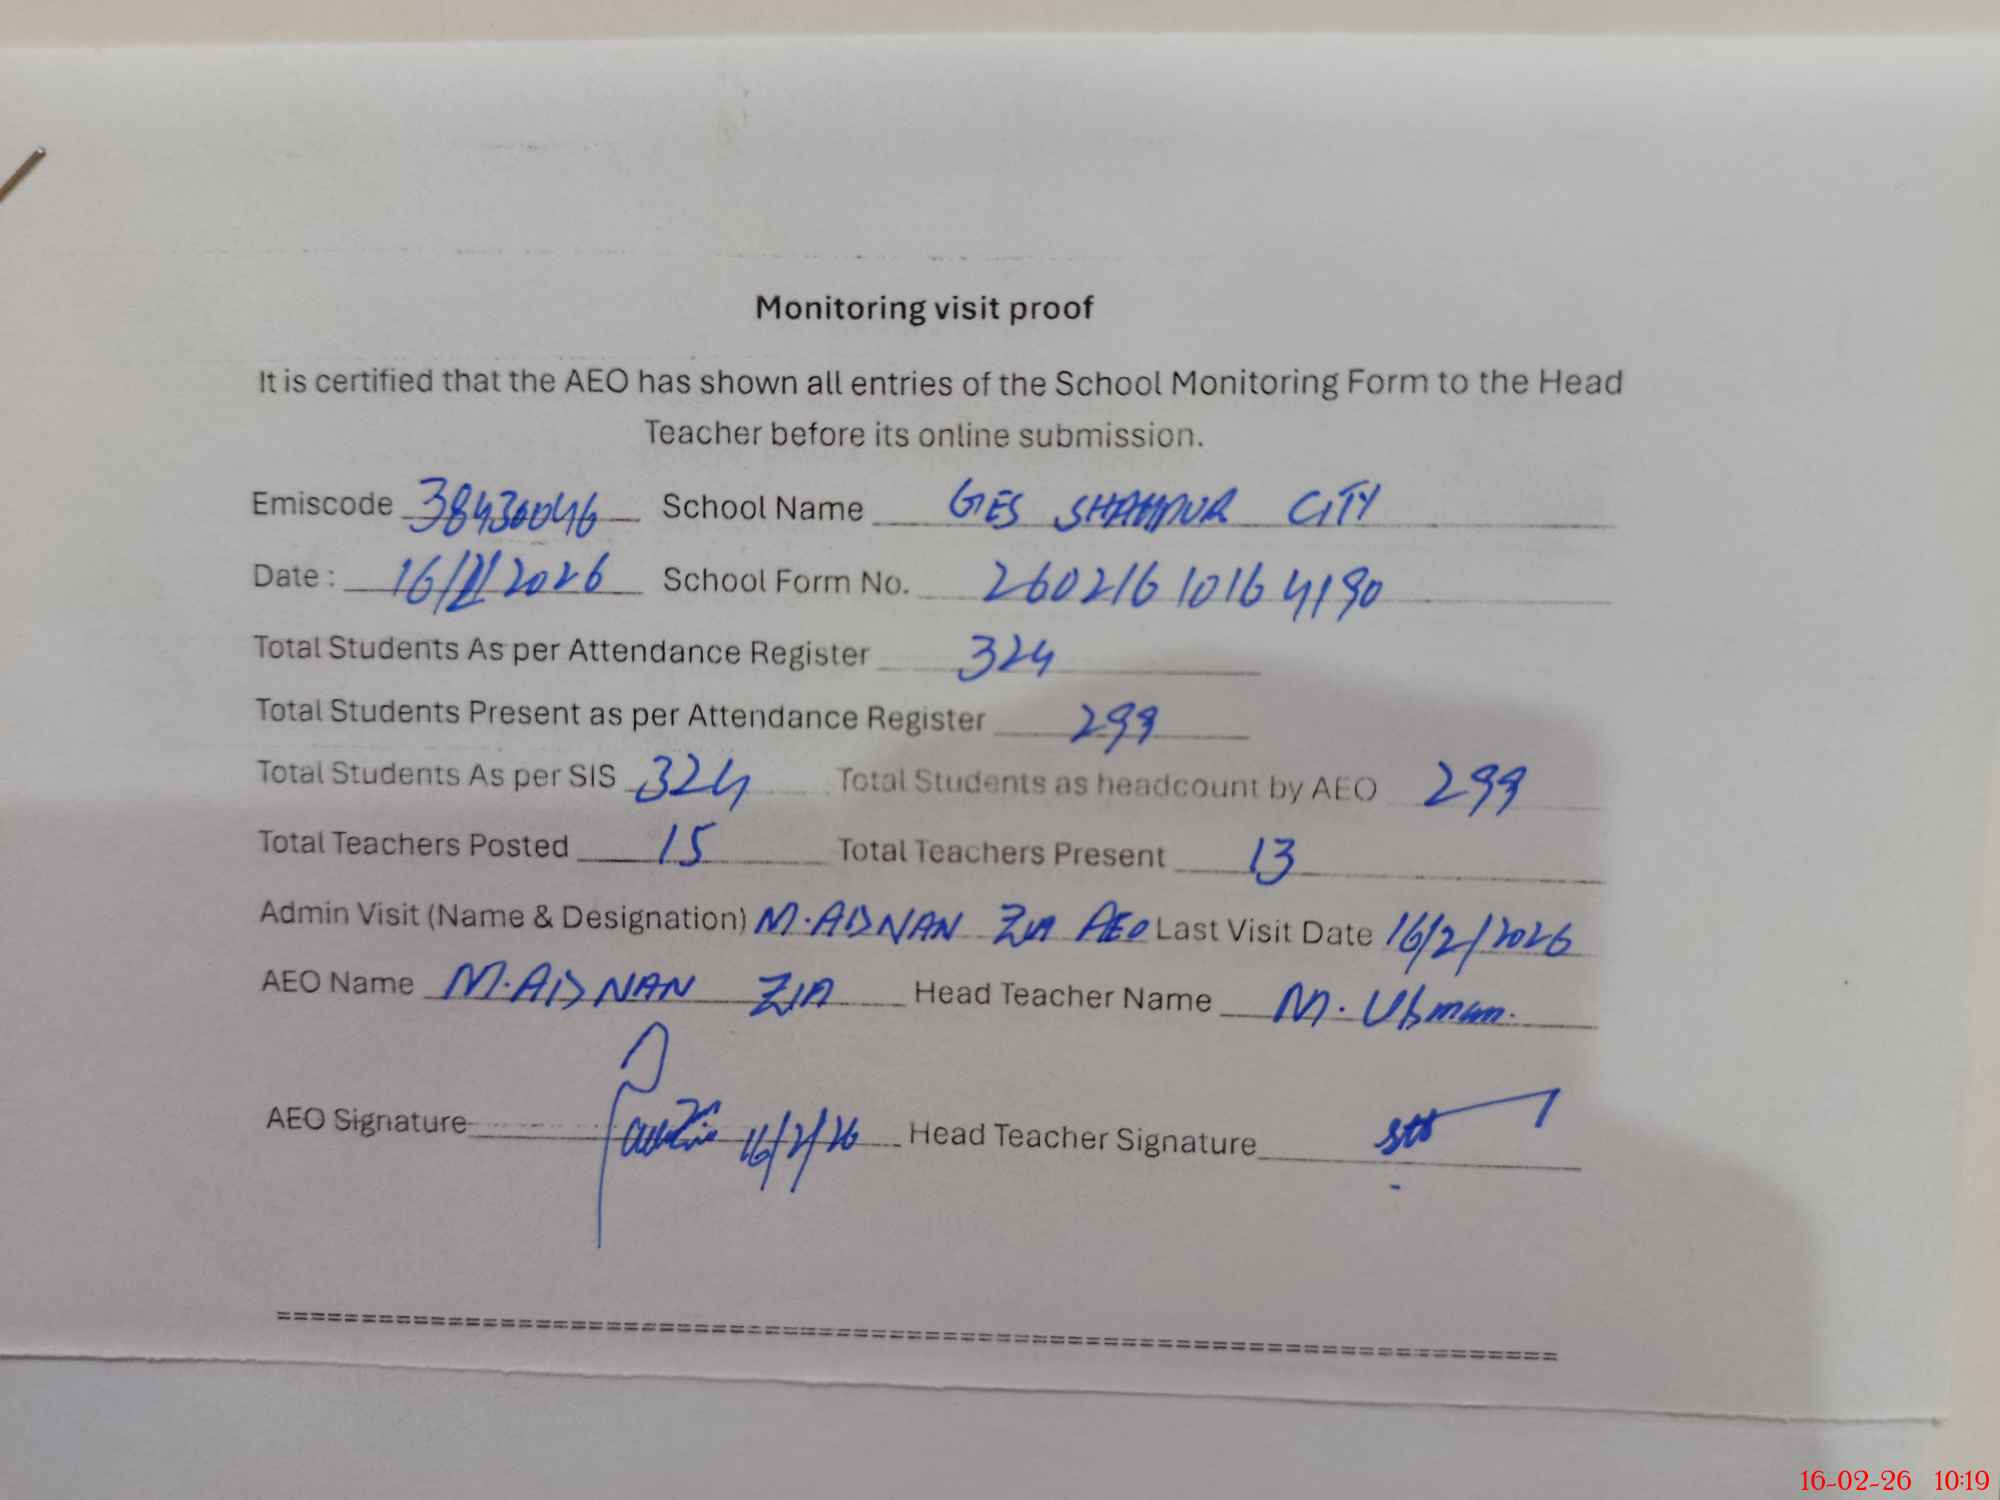 Monitoring visit proof
It is certified that the AEO has shown all entries of the School Monitoring Form to the Head
Teacher before its online submission.
Emiscode 38430046 School Name GES SHAHPUR CITY
Date : 16/2/2026 School Form No. 260216 1016 4190
Total Students As per Attendance Register 324
Total Students Present as per Attendance Register 299
Total Students As per SIS 324 Total Students as headcount by AEO 299
Total Teachers Posted 15 Total Teachers Present 13
Admin Visit (Name & Designation) M.ADNAN ZIA AEO Last Visit Date 16/2/2026
AEO Name M.ADNAN ZIA Head Teacher Name M. Usman.
AEO Signature 16/2/26 Head Teacher Signature
16-02-26 10:19